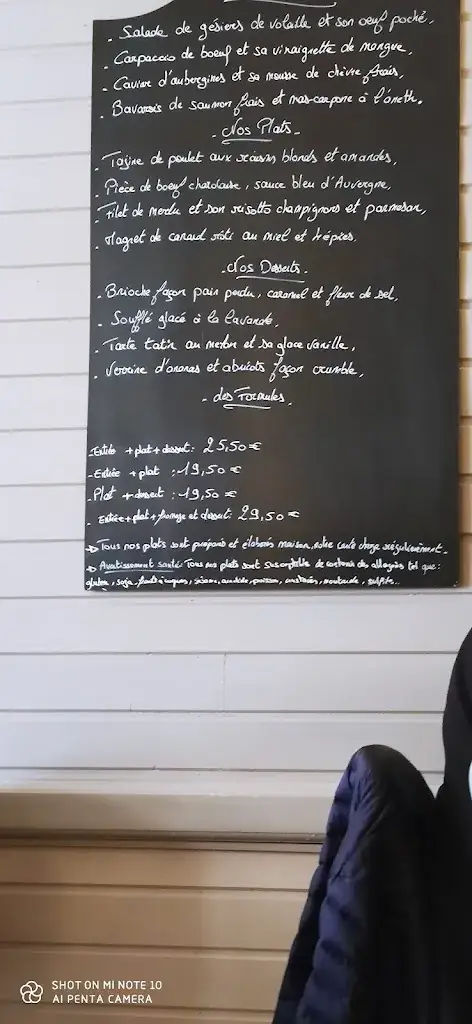 - Salade de gésiers de volaille et son oeuf poché,
- Carpaccio de boeuf et sa vinaigrette de mangue,
- Caviar d'aubergines et sa mousse de chèvre frais,
- Bavarois de saumon frais et mascarpone à l'aneth.
- Nos Plats -
- Tajine de poulet aux raisins blonds et amandes,
- Pièce de boeuf charolaise, sauce bleu d'Auvergne,
- Filet de merlu et son risotto champignons et parmesan,
- Magret de canard rôti au miel et 4 épices.
- Nos Desserts -
- Brioche façon pain perdu, caramel et fleur de sel,
- Soufflé glacé à la lavande,
- Tarte tatin au melon et sa glace vanille,
- Verrine d'ananas et abricots façon crumble,
- Les Formules.
- Entrée + plat + dessert : 25,50 €
- Entrée + plat : 19,50 €
- Plat + dessert : 19,50 €
- Entrée + plat + fromage et dessert : 29,50 €
Tous nos plats sont préparés et élaborés maison, notre carte change régulièrement.
Avertissement santé : Tous nos plats sont susceptible de contenir des allergènes tel que :
gluten, soja, fruits à coques, sésame, poisson, crustacés, moutarde, sulfites...
SHOT ON MI NOTE 10
AI PENTA CAMERA